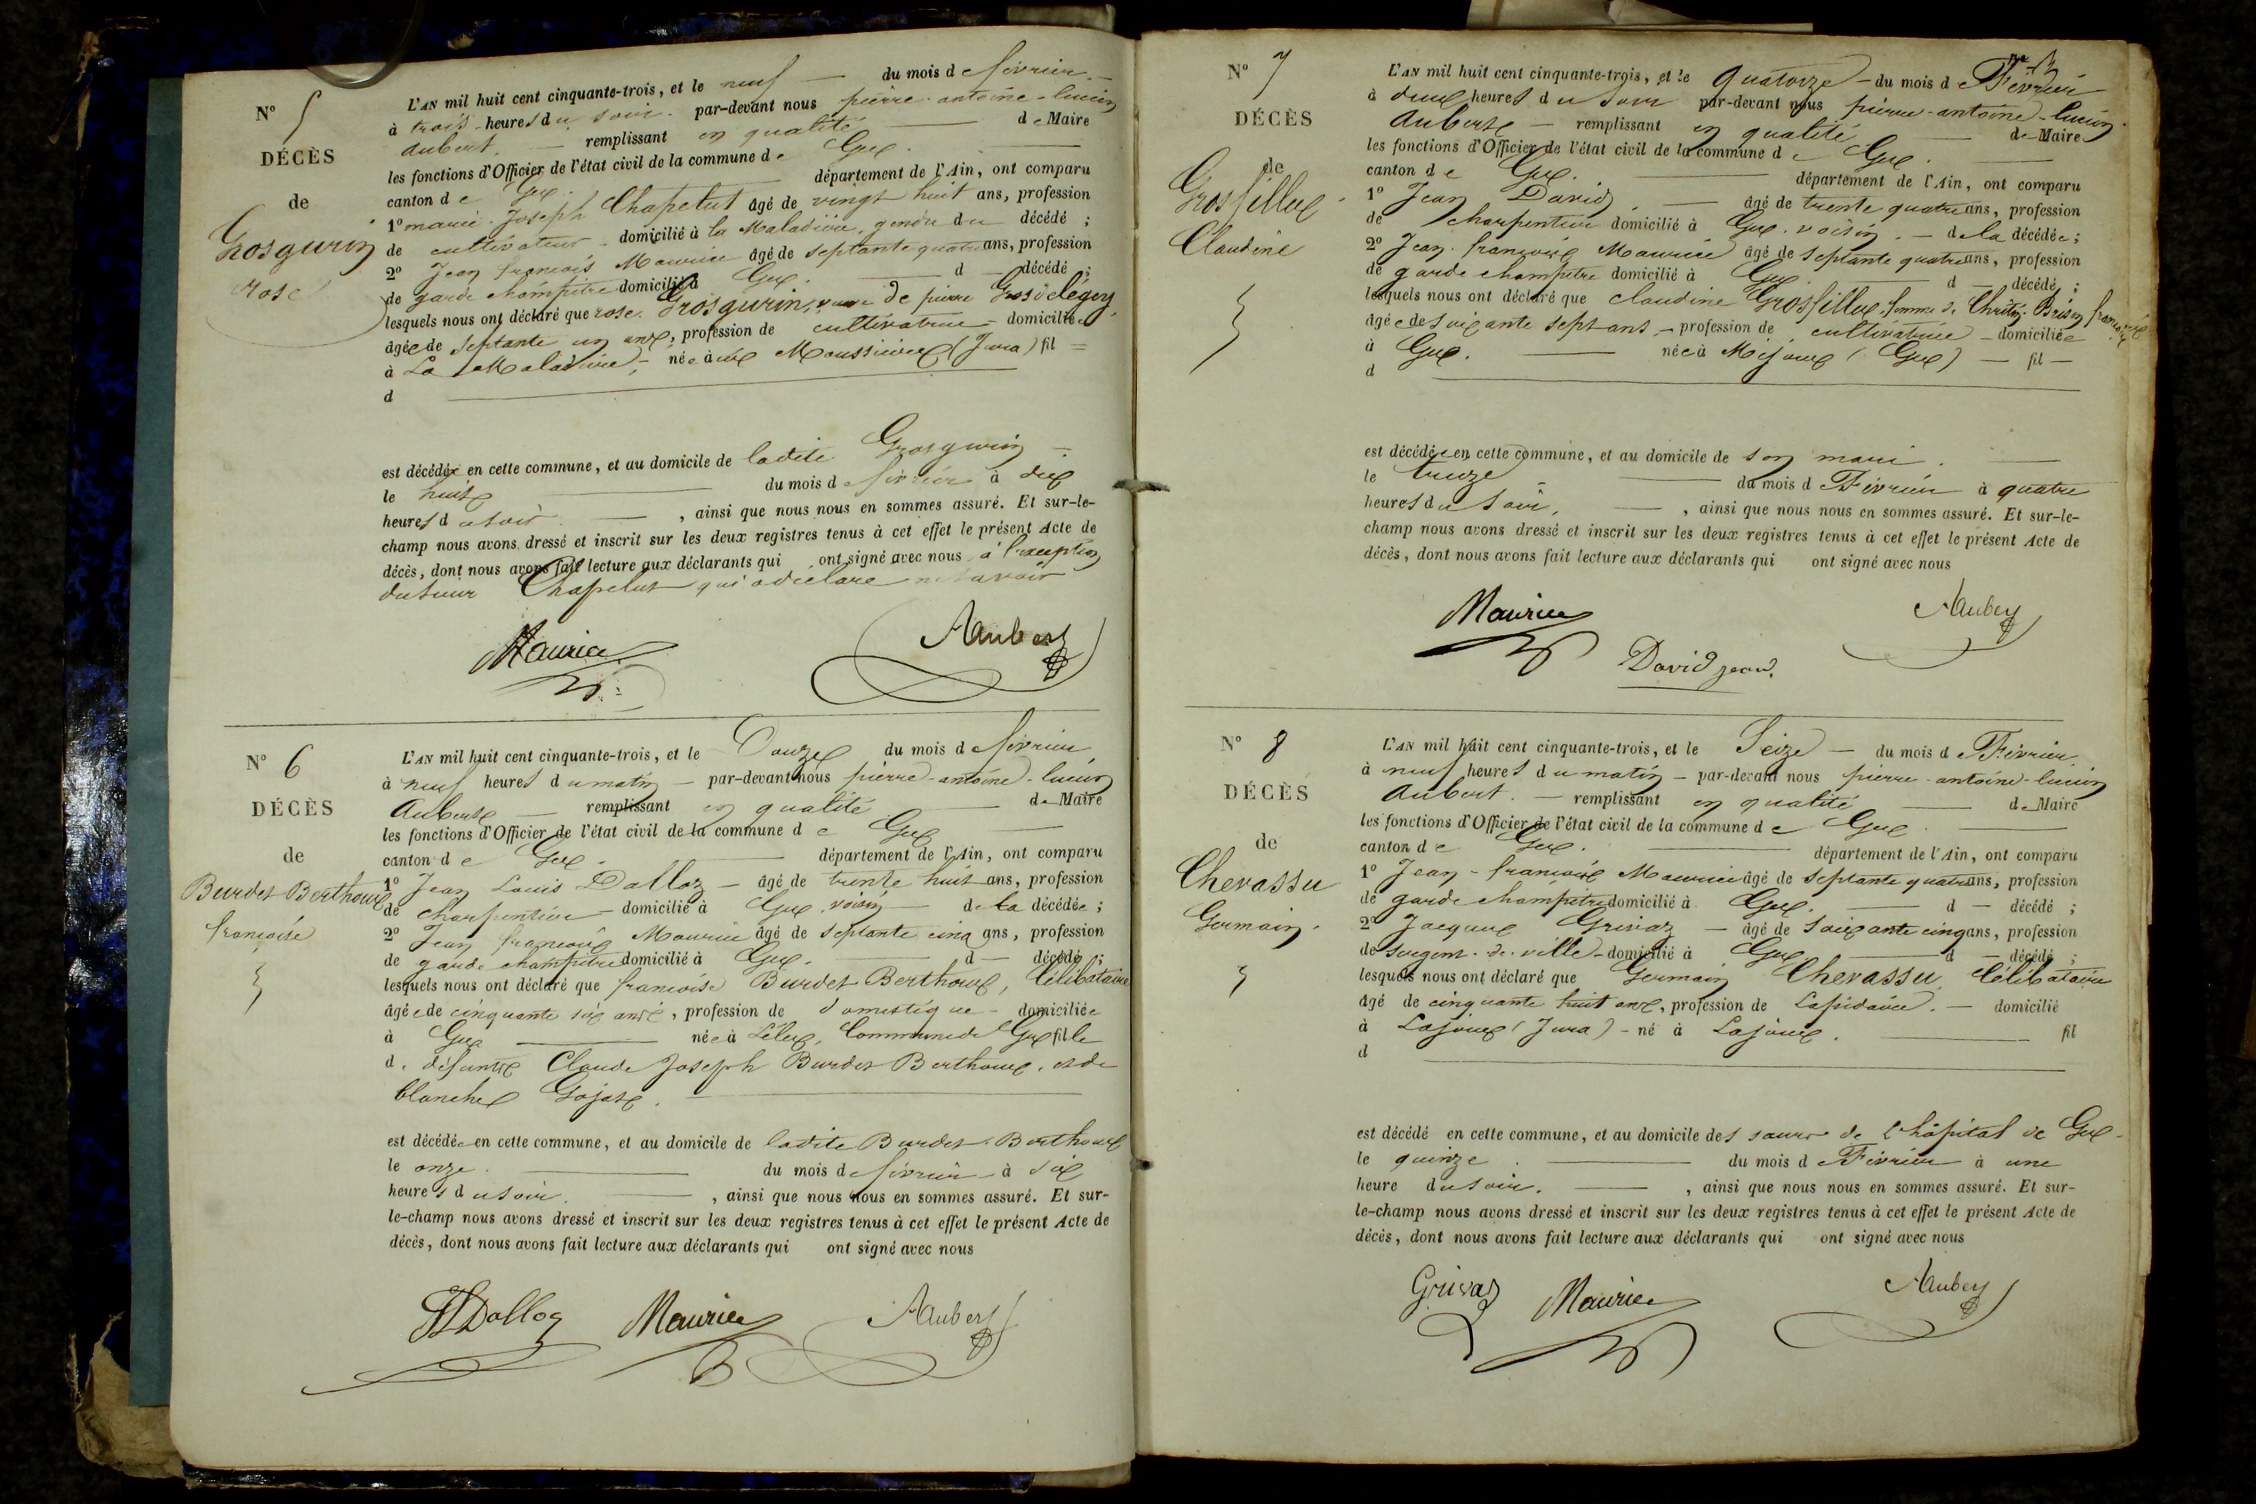 N° 5
DÉCÈS
de
Grosgurin
rose
L'AN mil huit cent cinquante-trois, et le neuf du mois de février
à trois heures du soir par-devant nous pierre-antoine-lucien
aubert. remplissant en qualité de Maire
les fonctions d'Officier de l'état civil de la commune de Gex.
canton de Gex. département de l'Ain, ont comparu
1° marie-Joseph Chapelut âgé de vingt huit ans, profession
de cultivateur domicilié à la Maladière, gendre du décédé ;
2° Jean françois Maurice âgé de septante quatre ans, profession
de garde champêtre domicilié à Gex. d décédé ;
lesquels nous ont déclaré que rose Grosgurin, veuve de pierre
âgée de septante un ans, profession de cultivatrice domiciliée
à La Maladière, née à Moussières (Jura) fil
d
est décédée en cette commune, et au domicile de ladite Grosgurin
le huit du mois de février à dix
heures du soir, ainsi que nous nous en sommes assuré. Et sur-le-
champ nous avons dressé et inscrit sur les deux registres tenus à cet effet le présent Acte de
décès, dont nous avons fait lecture aux déclarants qui ont signé avec nous à l'exception
du sieur Chapelut qui a déclaré ne savoir
Maurice Aubert
N° 6
DÉCÈS
de
Burdet Berthoux
françoise
L'AN mil huit cent cinquante-trois, et le Douze du mois de février
à neuf heures du matin par-devant nous pierre-antoine-lucien
Aubert remplissant en qualité de Maire
les fonctions d'Officier de l'état civil de la commune de Gex
canton de Gex. département de l'Ain, ont comparu
1° Jean Louis Dalloz âgé de trente huit ans, profession
de charpentier domicilié à Gex voisin de la décédée ;
2° Jean françois Maurice âgé de septante cinq ans, profession
de garde champêtre domicilié à Gex. d décédé ;
lesquels nous ont déclaré que françoise Burdet Berthoux, Célibataire
âgée de cinquante six ans, profession de domestique domiciliée
à Gex née à Lélex, Commune de Gex fille
d. défunts Claude Joseph Burdet Berthoux, et de
blanche Gojat.
est décédée en cette commune, et au domicile de ladite Burdet Berthoux
le onze. du mois de février à six
heures du soir, ainsi que nous nous en sommes assuré. Et sur-
le-champ nous avons dressé et inscrit sur les deux registres tenus à cet effet le présent Acte de
décès, dont nous avons fait lecture aux déclarants qui ont signé avec nous
Dalloz Maurice Aubert
N° 7
DÉCÈS
de
Grosfillex
Claudine
L'AN mil huit cent cinquante-trois, et le quatorze du mois de Février
à deux heures du soir par-devant nous pierre-antoine-lucien
Aubert remplissant en qualité de Maire
les fonctions d'Officier de l'état civil de la commune de Gex.
canton de Gex. département de l'Ain, ont comparu
1° Jean David. âgé de trente quatre ans, profession
de charpentier domicilié à Gex. voisin. de la décédée ;
2° Jean-françois Maurice âgé de septante quatre ans, profession
de garde champêtre domicilié à Gex. d décédé ;
lesquels nous ont déclaré que claudine Grosfillex, femme de françois
âgée de soixante sept ans, profession de cultivatrice domiciliée
à Gex. née à Mijoux (Gex) fil
d
est décédée en cette commune, et au domicile de son mari.
le treize du mois de Février à quatre
heures du soir, ainsi que nous nous en sommes assuré. Et sur-le-
champ nous avons dressé et inscrit sur les deux registres tenus à cet effet le présent Acte de
décès, dont nous avons fait lecture aux déclarants qui ont signé avec nous
Maurice Aubert
David jean.
N° 8
DÉCÈS
de
Chevassu
Germain.
L'AN mil huit cent cinquante-trois, et le Seize du mois de Février
à neuf heures du matin par-devant nous pierre-antoine-lucien
aubert. remplissant en qualité de Maire
les fonctions d'Officier de l'état civil de la commune de Gex.
canton de Gex. département de l'Ain, ont comparu
1° Jean-françois Maurice âgé de septante quatre ans, profession
de garde champêtre domicilié à Gex. d décédé ;
2° Jacques Grivaz âgé de soixante cinq ans, profession
de sergent de ville domicilié à Gex d décédé ;
lesquels nous ont déclaré que Germain Chevassu, Célibataire
âgé de cinquante huit ans, profession de Lapidaire. domicilié
à Lajoux (Jura) né à Lajoux. fil
d
est décédé en cette commune, et au domicile des sœurs de l'hôpital de Gex
le quinze. du mois de Février à une
heure du soir, ainsi que nous nous en sommes assuré. Et sur-
le-champ nous avons dressé et inscrit sur les deux registres tenus à cet effet le présent Acte de
décès, dont nous avons fait lecture aux déclarants qui ont signé avec nous
Grivaz Maurice Aubert